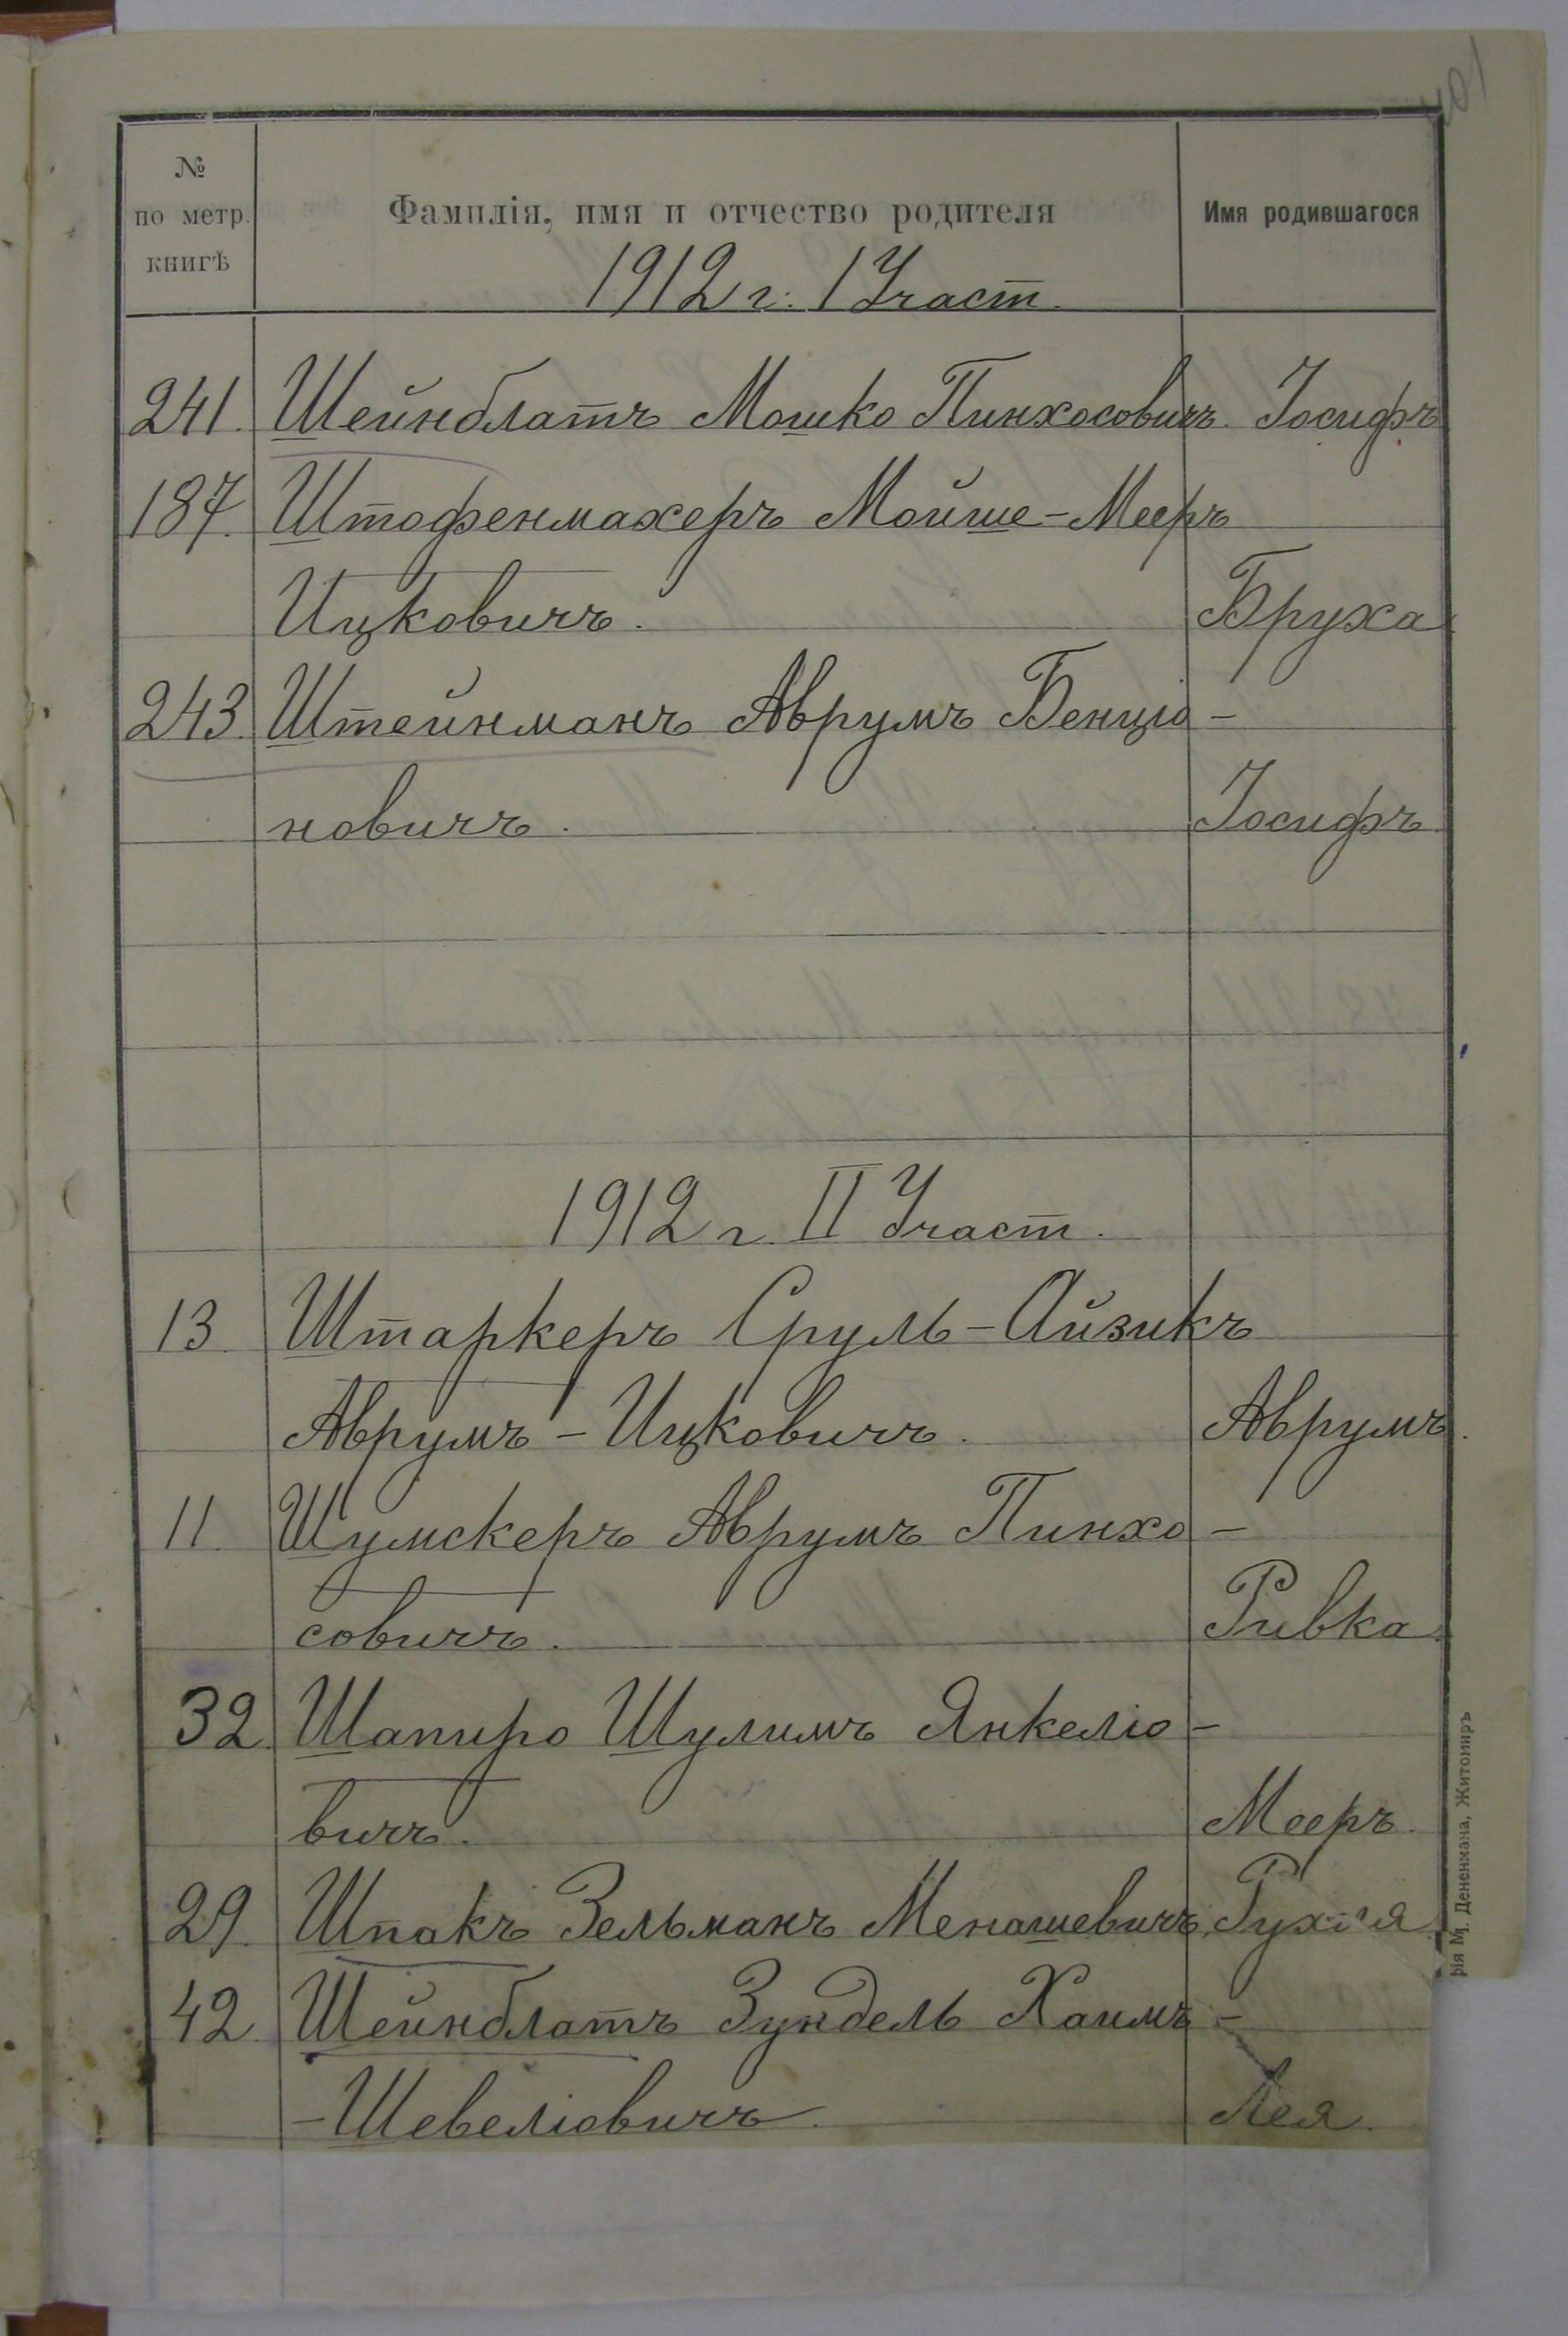 №
по метр.
книгѣ
Фамилія, имя и отчество родителя
Имя родившагося
1912 г. I Участ.
241. Шейнблатъ Мошко Пинхосовичъ. Іосифъ
187. Штофенмахеръ Мойше-Мееръ
Ицковичъ. Бруха
243. Штейнманъ Аврумъ Бенціо-
новичъ. Іосифъ
1912 г. II Участ.
13 Штаркеръ Сруль-Айзикъ
Аврумъ-Ицковичъ. Аврумъ.
11. Шумскеръ Аврумъ Пинхо-
совичъ. Ривка
32. Шапиро Шулимъ Янкеліо-
вичъ. Мееръ.
29. Шпакъ Зельманъ Менашевичъ. Рухля
42. Шейнблатъ Зундель Хаимъ-
-Шевеліовичъ. Лея.
рія М. Дененмана, Житомиръ